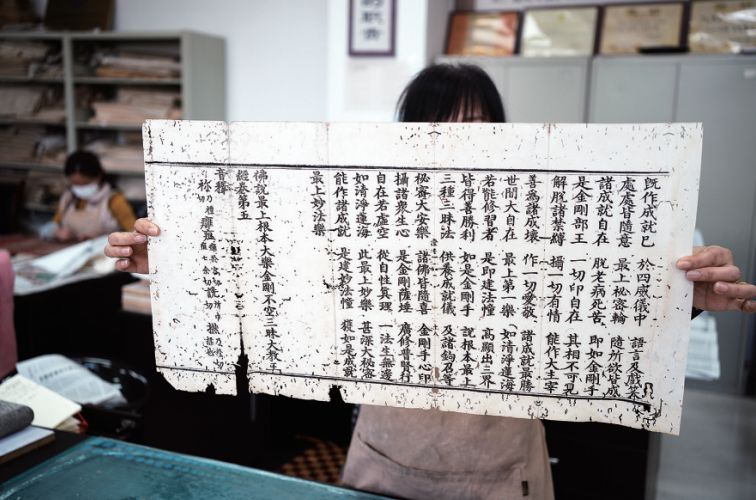 既作成就已 於四威儀中 語言及戲笑
處處皆隨意 最上祕密輪 隨所欲皆成
諸成就自在 脫老病死苦 即如金剛手
是金剛部王 一切印自在 其相不可見
解脫諸禁縛 攝一切有情 能作大主宰
善為諸成壞 作一切愛敬 諸成就最勝
世間大自在 最上第一樂 如清淨蓮海
若能修習者 是即建法幢 高顯出三界
皆得善勝利 如是金剛手 說根本最上
三種三昧法 供養成就儀 及諸鉤召等
祕密大安樂 諸佛皆隨喜 金剛手心印
攝諸眾生心 是金剛薩埵 廣修普賢行
自在若虛空 從自性真理 一法生無邊
如清淨蓮海 此最上妙樂 甚深大祕密
能作諸成就 是建妙法幢 復如是成就
最上妙法樂
佛說最上根本大樂金剛不空三昧大教王
經卷第五
音釋